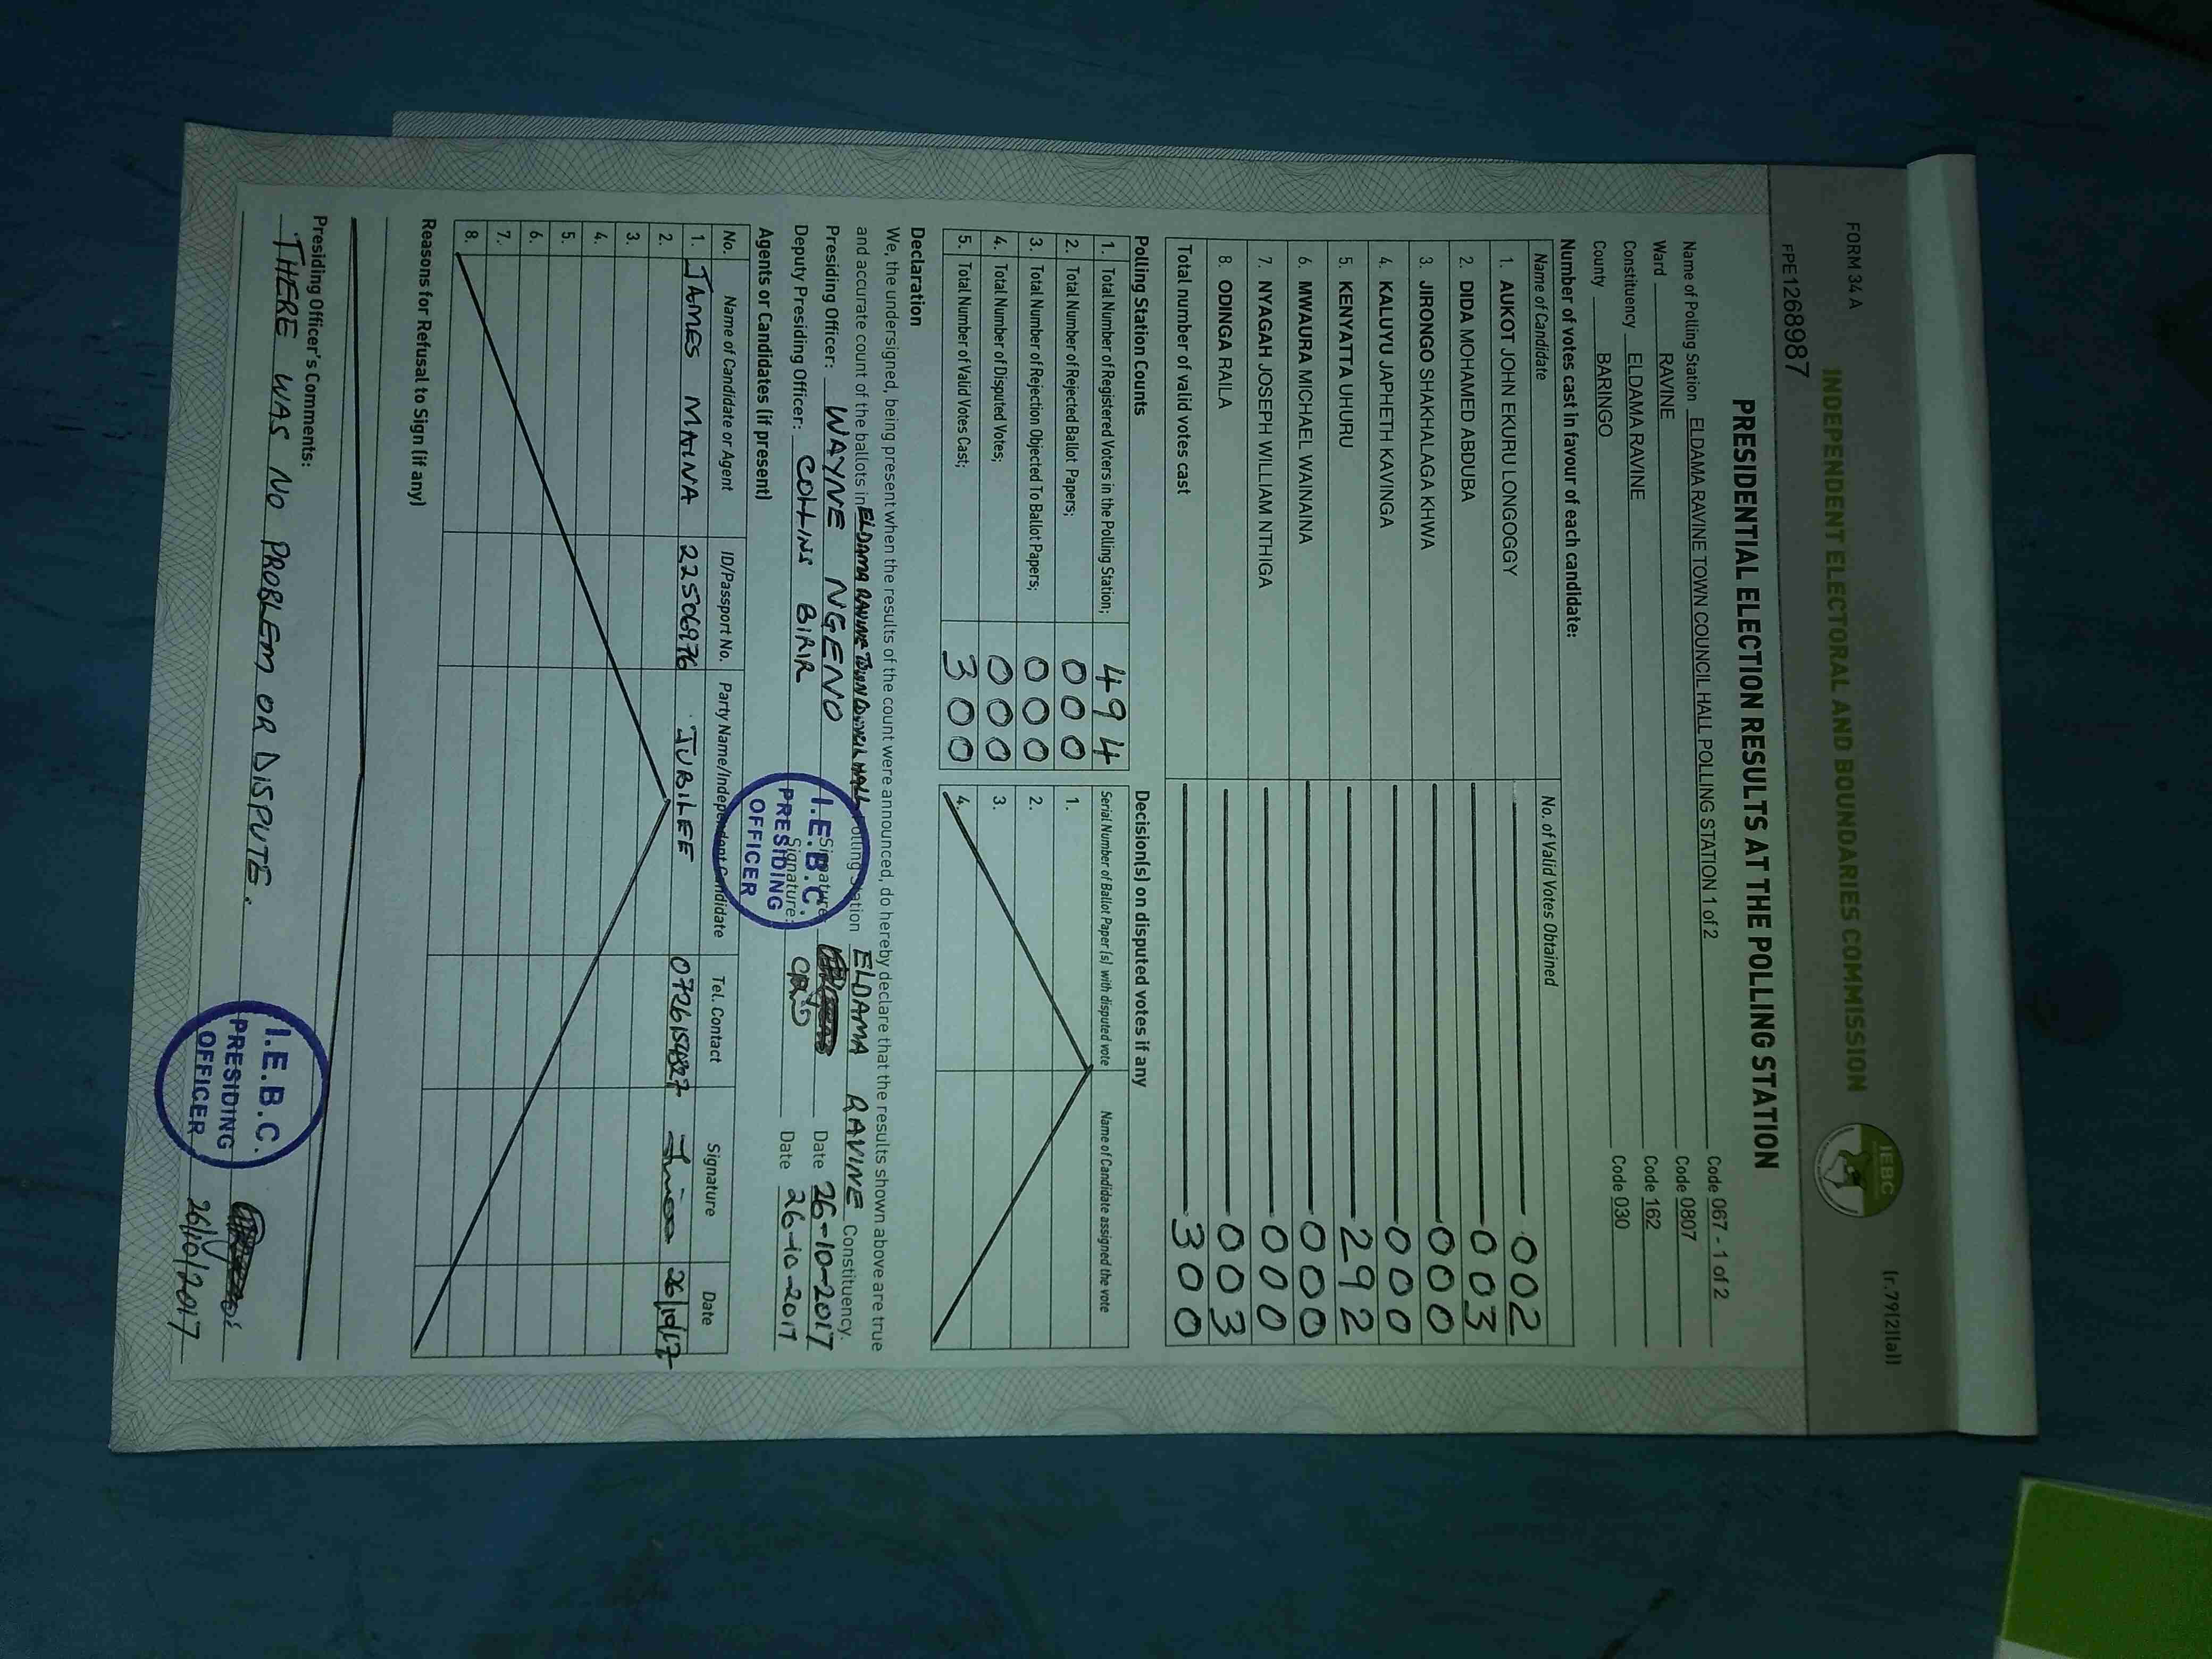 FORM 34 A
(r.79(2)(a))
INDEPENDENT ELECTORAL AND BOUNDARIES COMMISSION
IEBC
FPE1268987
PRESIDENTIAL ELECTION RESULTS AT THE POLLING STATION
Name of Polling Station ELDAMA RAVINE TOWN COUNCIL HALL POLLING STATION 1 of 2 Code 067 - 1 of 2
Ward RAVINE Code 0807
Constituency ELDAMA RAVINE Code 162
County BARINGO Code 030
Number of votes cast in favour of each candidate:
Name of Candidate No. of Valid Votes Obtained
1. AUKOT JOHN EKURU LONGOGGY 002
2. DIDA MOHAMED ABDUBA 003
3. JIRONGO SHAKHALAGA KHWA 000
4. KALUYU JAPHETH KAVINGA 000
5. KENYATTA UHURU 292
6. MWAURA MICHAEL WAINAINA 000
7. NYAGAH JOSEPH WILLIAM NTHIGA 000
8. ODINGA RAILA 003
Total number of valid votes cast 300
Polling Station Counts Decision(s) on disputed votes if any
1. Total Number of Registered Voters in the Polling Station; 494 Serial Number of Ballot Paper (s) with disputed vote Name of Candidate assigned the vote
2. Total Number of Rejected Ballot Papers; 000 1.
3. Total Number of Rejection Objected To Ballot Papers; 000 2.
4. Total Number of Disputed Votes; 000 3.
5. Total Number of Valid Votes Cast; 300 4.
Declaration
We, the undersigned, being present when the results of the count were announced, do hereby declare that the results shown above are true
and accurate count of the ballots in ELDAMA RAVINE TOWN COUNCIL HALL Polling Station ELDAMA RAVINE Constituency.
Presiding Officer: WAYNE NGENO Signature: Date 26-10-2017
Deputy Presiding Officer: COLLINS BIRIR Signature: Date 26-10-2017
I.E.B.C.
PRESIDING
OFFICER
Agents or Candidates (if present)
No. Name of Candidate or Agent ID/Passport No. Party Name/Independent Candidate Tel. Contact Signature Date
1. JAMES MAINA 22506976 JUBILEE 26/10/17
2.
3.
4.
5.
6.
7.
8.
Reasons for Refusal to Sign (if any)
Presiding Officer's Comments:
THERE WAS NO PROBLEM OR DISPUTE.
I.E.B.C.
PRESIDING
OFFICER
26/10/2017